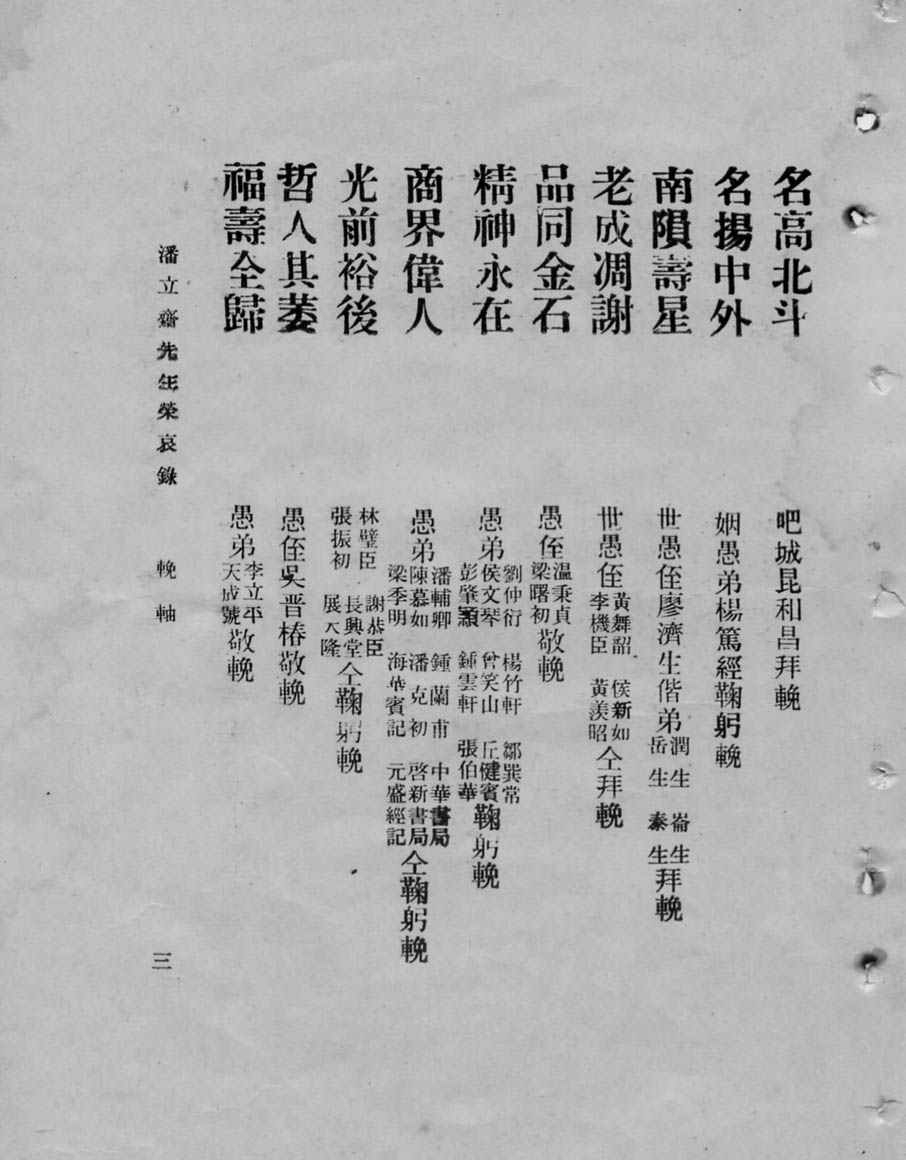 名高北斗 吧城昆和昌拜輓
名揚中外 姻愚弟楊篤經鞠躬輓
南隕壽星 世愚侄廖濟生偕弟潤生 崙生 岳生 泰生拜輓
老成凋謝 世愚侄黃舞韶 侯新如 李機臣 黃羨昭仝拜輓
品同金石 愚侄温秉貞 梁曙初敬輓
精神永在 愚弟劉仲衍 楊竹軒 鄒巽常 侯文琴 曾笑山 丘健賓 彭肇顥 鍾雲軒 張伯華鞠躬輓
商界偉人 愚弟潘輔卿 鍾蘭甫 中華書局 陳慕如 潘克初 啓新書局 梁季明 海華賓記 元盛經記仝鞠躬輓
光前裕後 林璧臣 謝恭臣 張振初 長興堂 展天隆仝鞠躬輓
哲人其萎 愚侄吳晋椿敬輓
福壽全歸 愚弟李立平 天成號敬輓
潘立齋先生榮哀錄 輓軸 三